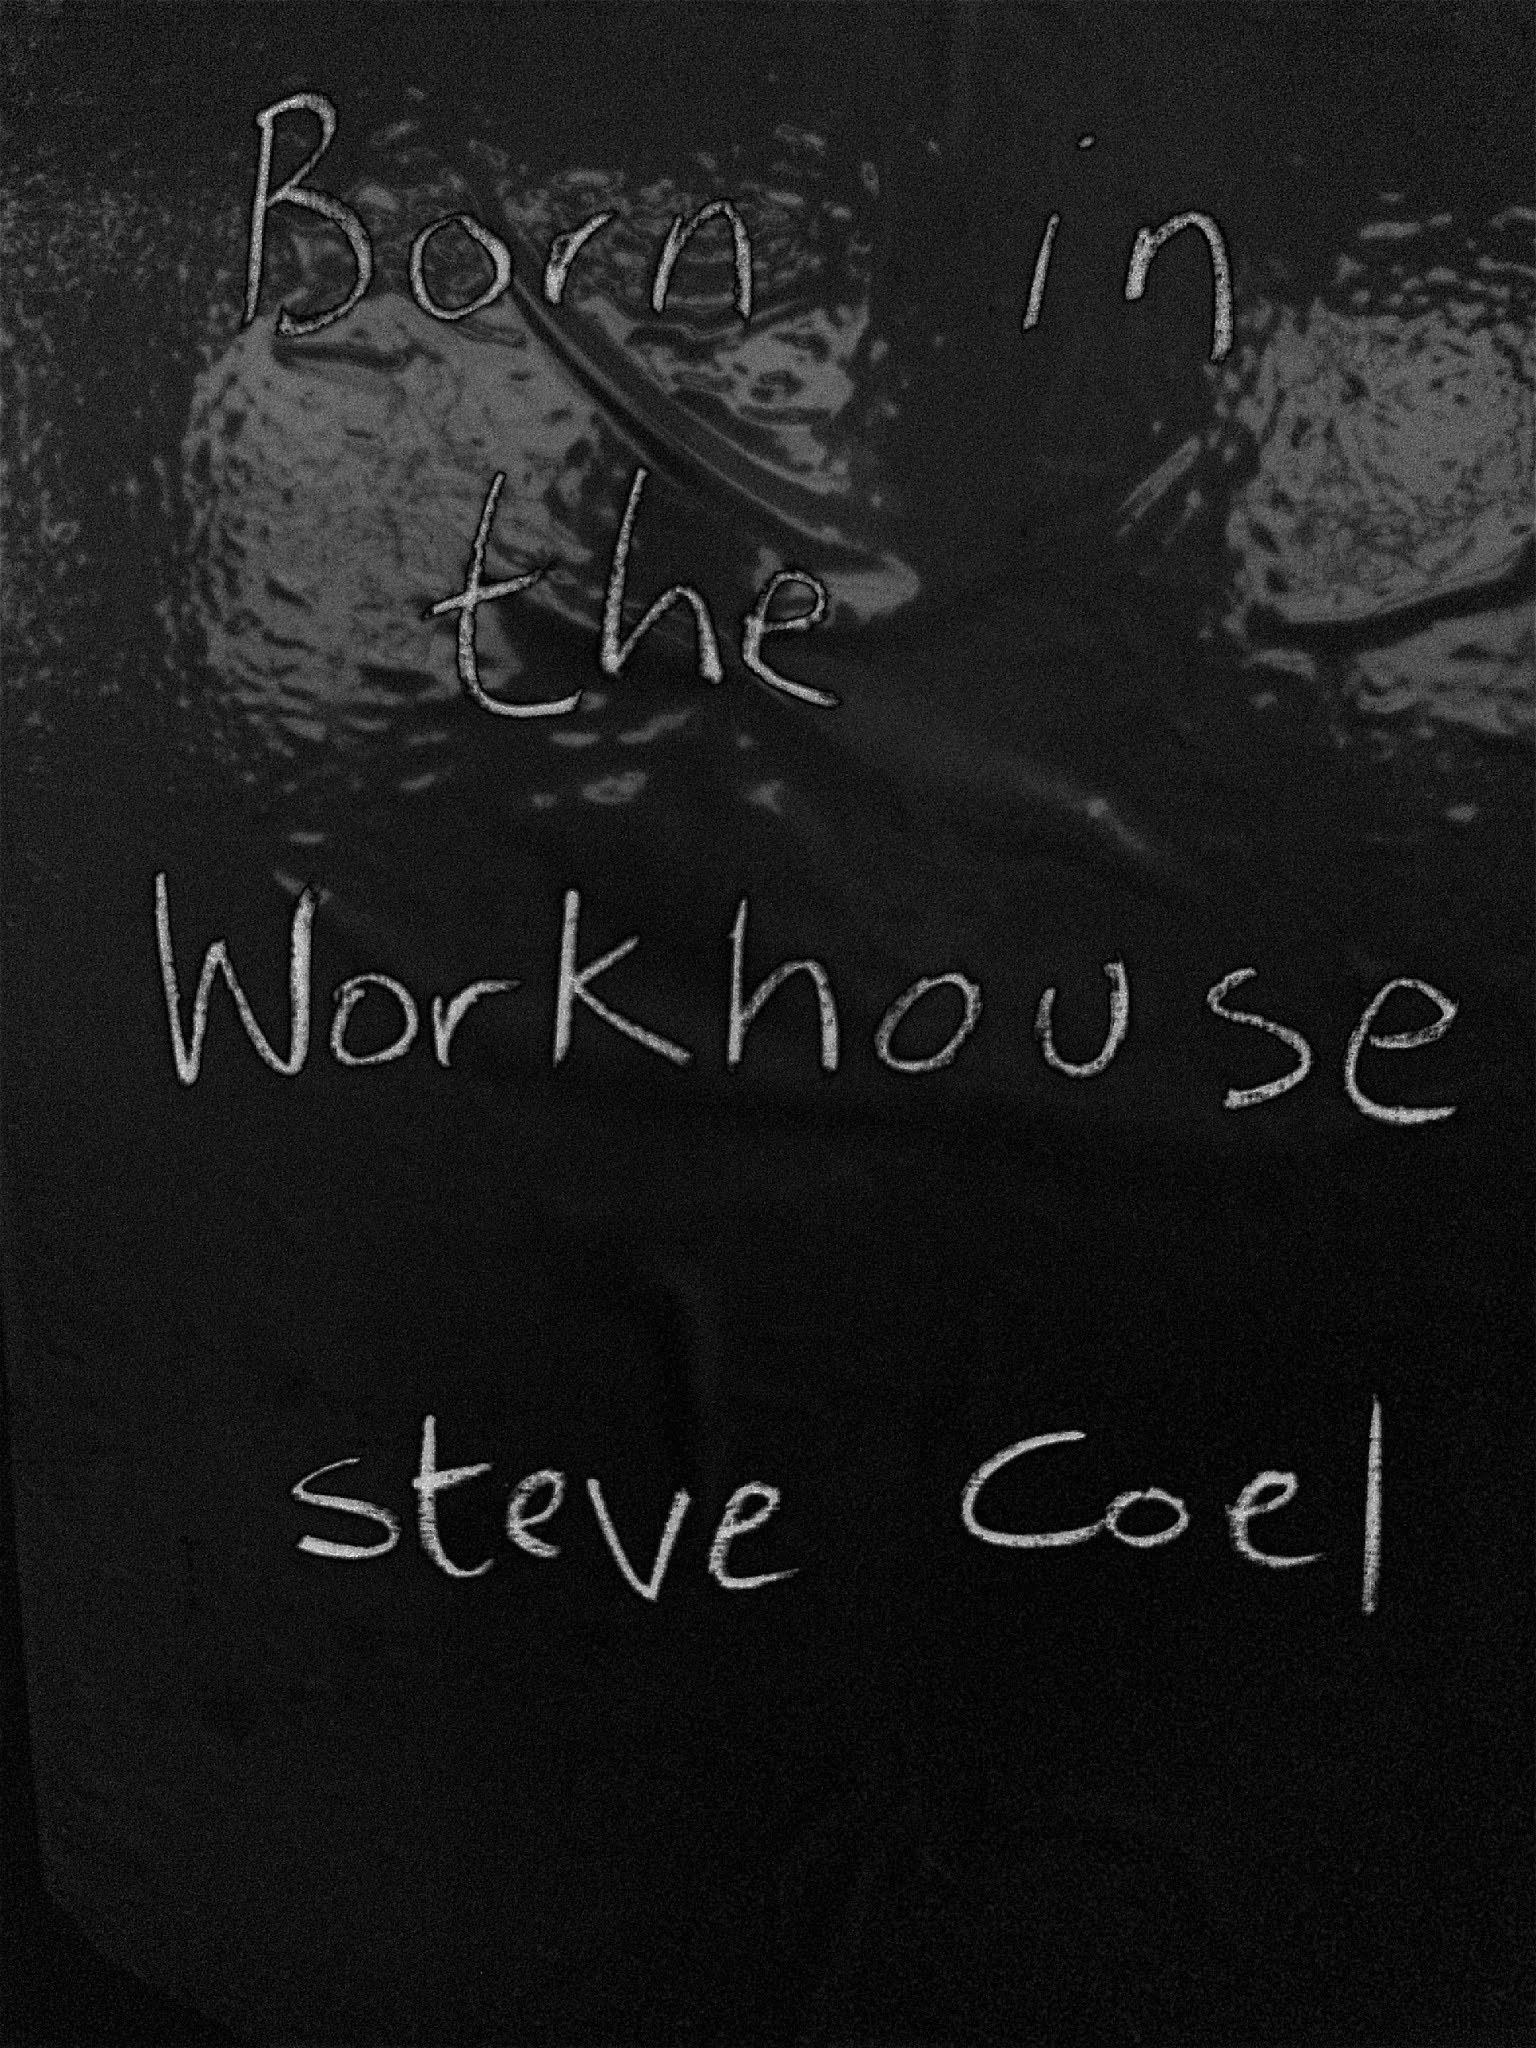 Born in
the
Workhouse
Steve Coel